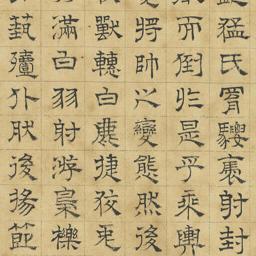 猛氏罥騕褭射封
而倒於是乎乘輿
將帥之變態然後
獸轊白鹿捷狡兔
滿白羽射游梟櫟
蓺殪仆肰後揚節